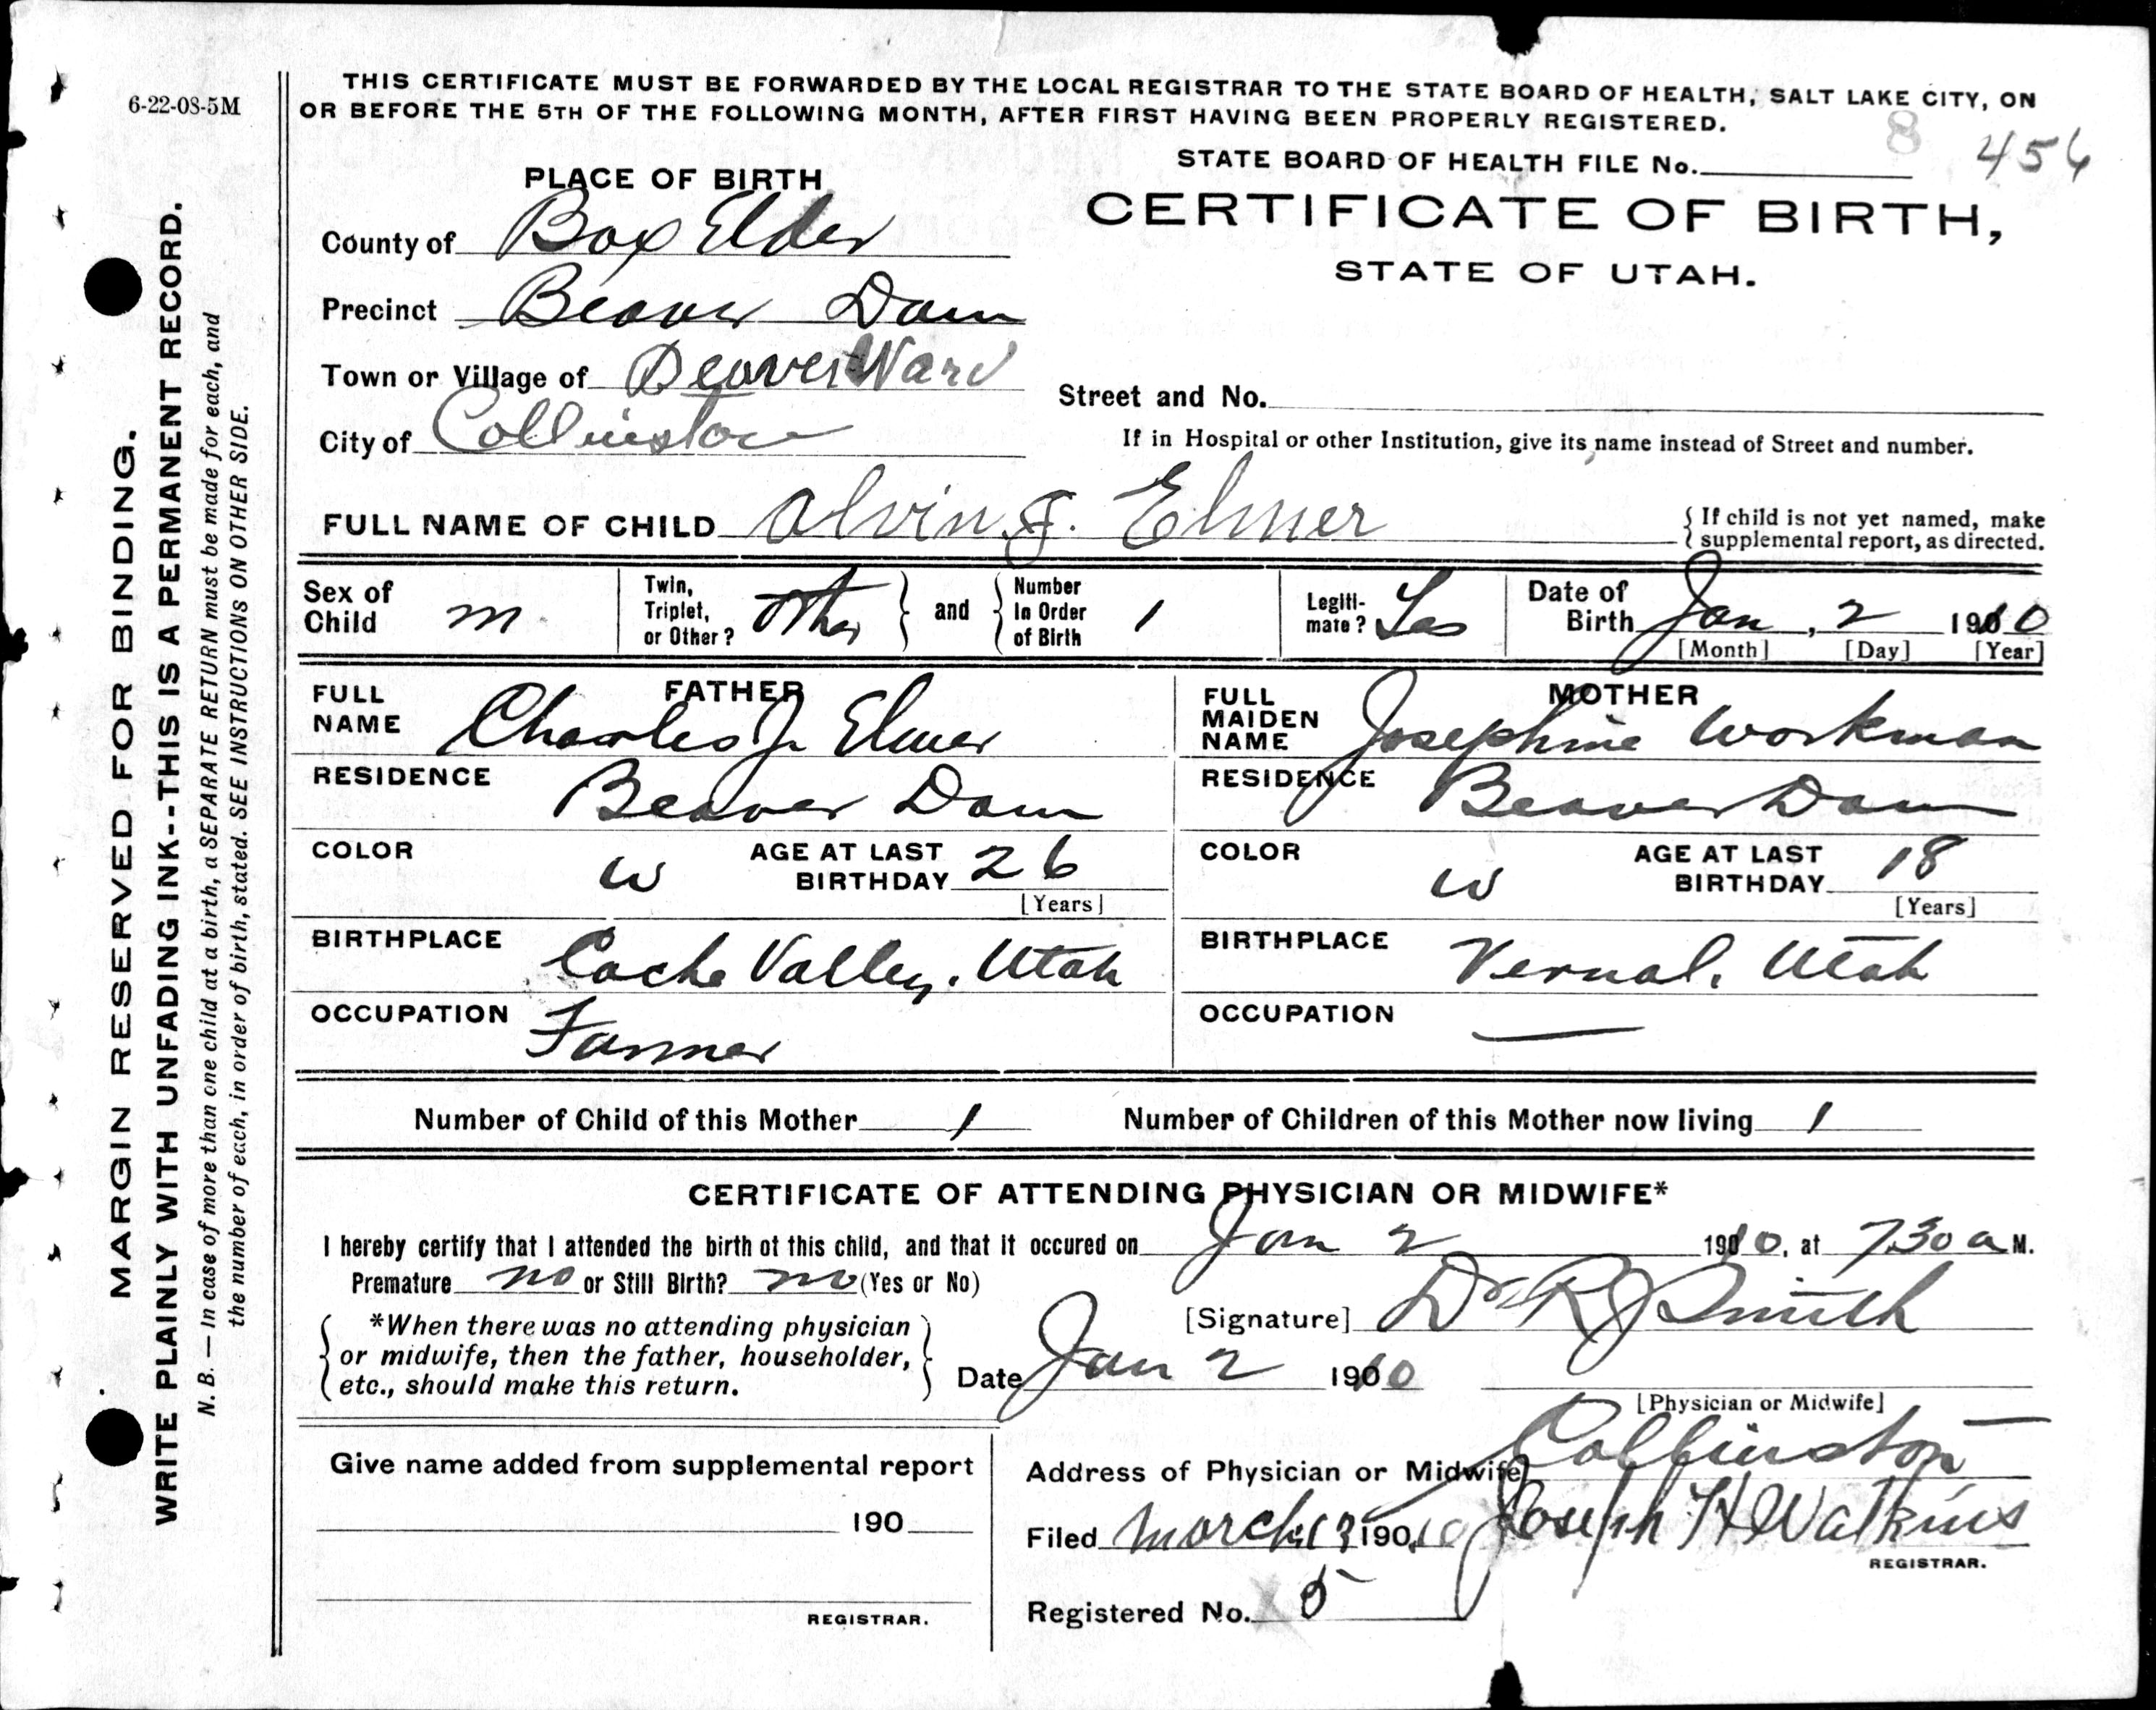 6-22-08-5M
THIS CERTIFICATE MUST BE FORWARDED BY THE LOCAL REGISTRAR TO THE STATE BOARD OF HEALTH, SALT LAKE CITY, ON
OR BEFORE THE 5TH OF THE FOLLOWING MONTH, AFTER FIRST HAVING BEEN PROPERLY REGISTERED.
STATE BOARD OF HEALTH FILE No. 8 456
CERTIFICATE OF BIRTH,
STATE OF UTAH.
PLACE OF BIRTH
County of Box Elder
Precinct Beaver Dam
Town or Village of Beaver Ward
City of Collinston
Street and No.
If in Hospital or other Institution, give its name instead of Street and number.
FULL NAME OF CHILD Alvin J. Elmer
If child is not yet named, make
supplemental report, as directed.
Sex of Child m
Twin, Triplet, or Other? Other and Number In Order of Birth 1
Legiti-mate? Yes
Date of Birth Jan, 2 1910
[Month] [Day] [Year]
FATHER
FULL NAME Charles J. Elmer
RESIDENCE Beaver Dam
COLOR W AGE AT LAST BIRTHDAY 26
[Years]
BIRTHPLACE Cache Valley, Utah
OCCUPATION Farmer
MOTHER
FULL MAIDEN NAME Josephine Workman
RESIDENCE Beaver Dam
COLOR W AGE AT LAST BIRTHDAY 18
[Years]
BIRTHPLACE Vernal, Utah
OCCUPATION —
Number of Child of this Mother 1 Number of Children of this Mother now living 1
CERTIFICATE OF ATTENDING PHYSICIAN OR MIDWIFE*
I hereby certify that I attended the birth of this child, and that it occured on Jan 2 1910, at 7.30 a M.
Premature no or Still Birth? no (Yes or No)
*When there was no attending physician
or midwife, then the father, householder,
etc., should make this return.
[Signature] Dr R J Smith
Date Jan 2 1910
[Physician or Midwife]
Give name added from supplemental report
190
REGISTRAR.
Address of Physician or Midwife Collinston
Filed March 190 10 Joseph H Watkins
REGISTRAR.
Registered No. 5
MARGIN RESERVED FOR BINDING.
WRITE PLAINLY WITH UNFADING INK--THIS IS A PERMANENT RECORD.
N. B. — In case of more than one child at a birth, a SEPARATE RETURN must be made for each, and
the number of each, in order of birth, stated. SEE INSTRUCTIONS ON OTHER SIDE.